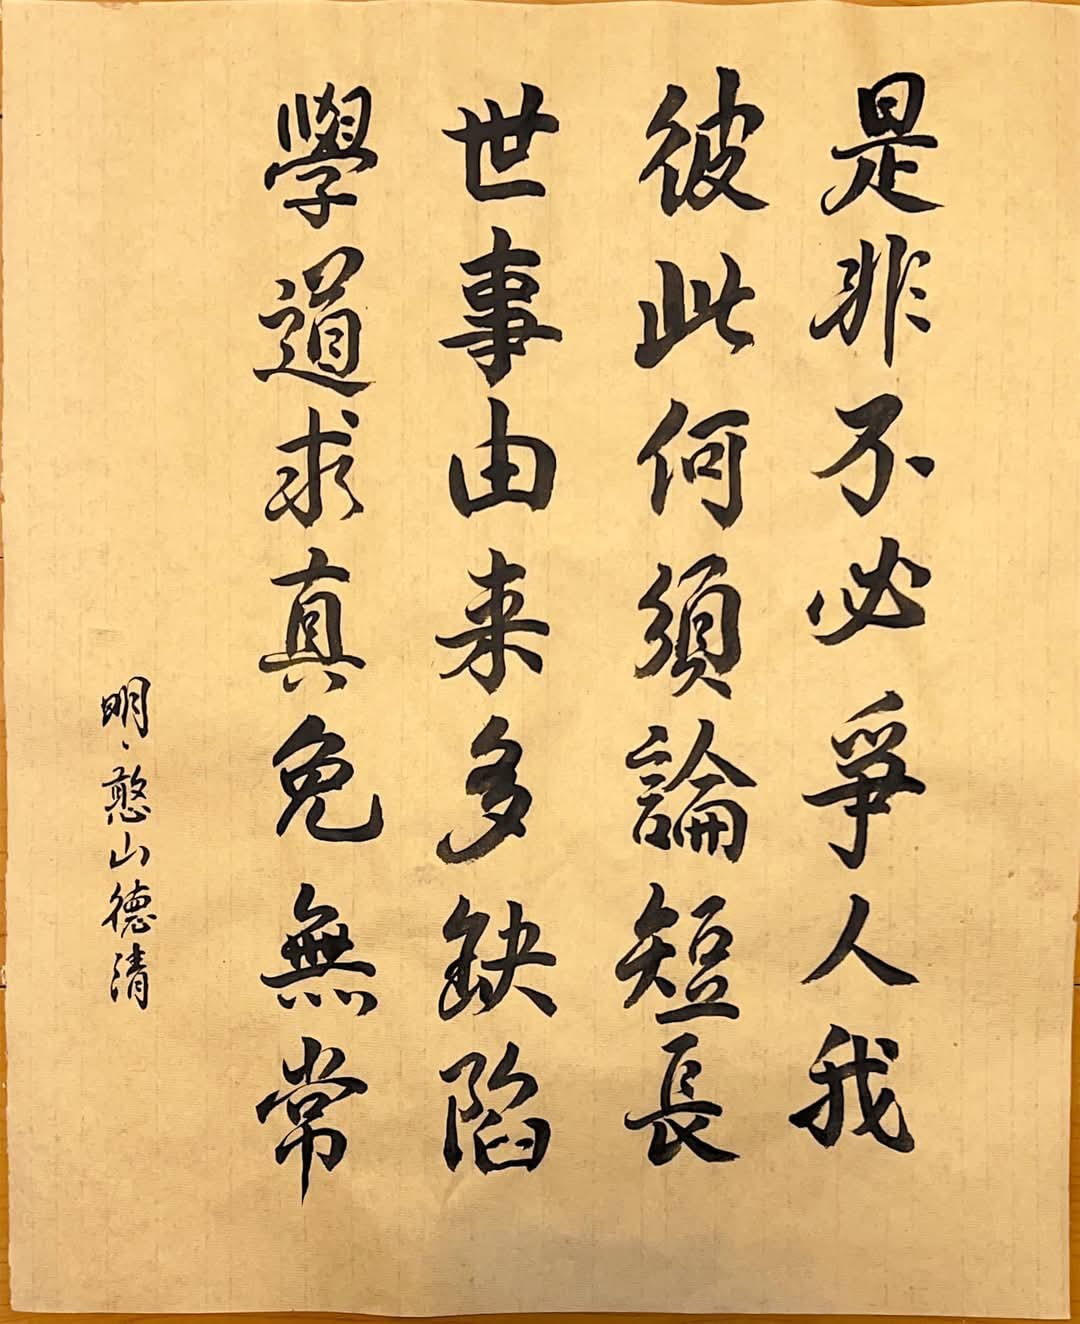 是非不必爭人我
彼此何須論短長
世事由来多缺陷
學道求真免無常
明、憨山德清